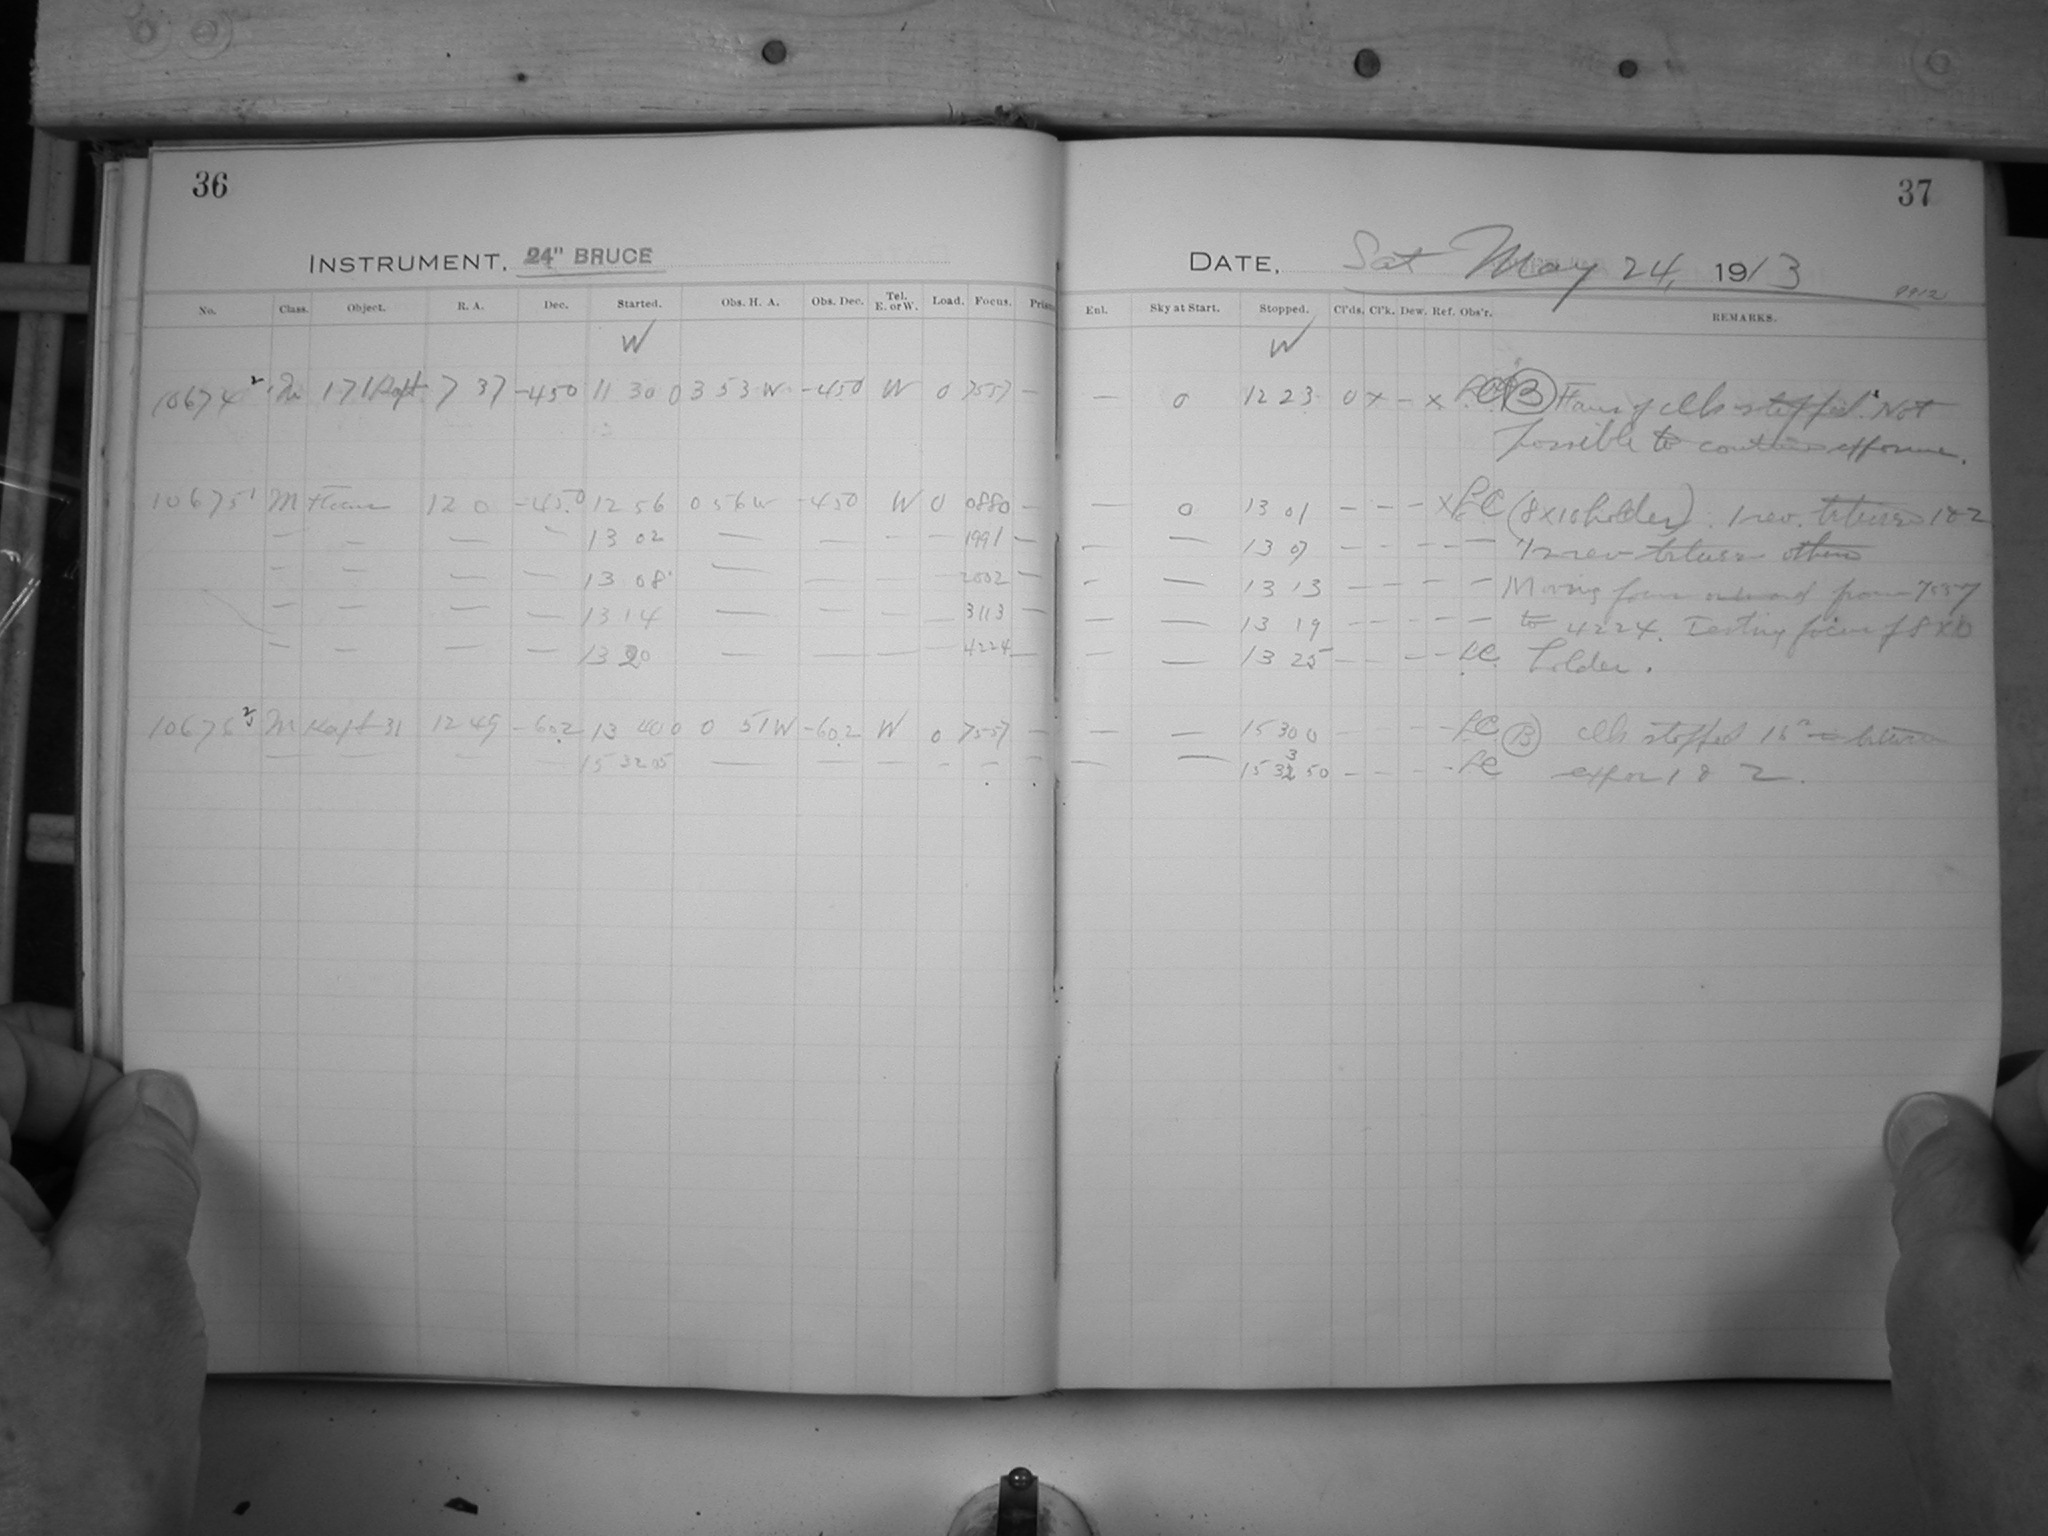 36
INSTRUMENT. 24" BRUCE
No. Class. Object. R. A. Dec. Started. Obs. H. A. Obs. Dec. Tel. E. or W. Load. Focus. Prism
W
10674 2 171 Kapt 7 37 -45.0 11 30 0 3 53 W -450 W 0 7557 —
10675 1 M Focus 12 0 -45.0 12 56 0 56 W -450 W 0 0880 —
— — — — 13 02 — — — — 1991 —
— — — — 13 08 — — — — 2002 —
— — — — 13 14 — — 3113 —
— — — — 13 20 — — — — 4224 —
10676 2 M Kapt 31 12 49 -60.2 13 40 0 0 51 W -60.2 W 0 7557 —
— — — — 15 32 05 — — — — — —
37
DATE. Sat May 24, 1913
Enl. Sky at Start. Stopped. Cl'ds. Cl'k. Dew. Ref. Obs'r. REMARKS.
W
— 0 12 23 0 x — x (B) stopped. Not
possible to continue exposure.
— 0 13 01 — — — x LC (8x10 holder). 1 rev. between 1 & 2
— — 13 07 — — — — rev between others
— — 13 13 — — — — Moving focus from 7557
— — 13 19 — — — — to 4224. Testing focus of 8x10
— — 13 25 — — — LC holder.
— — 15 30 0 — — — LC (B) stopped between
— — 15 33 50 — — — LC expos 1 & 2.